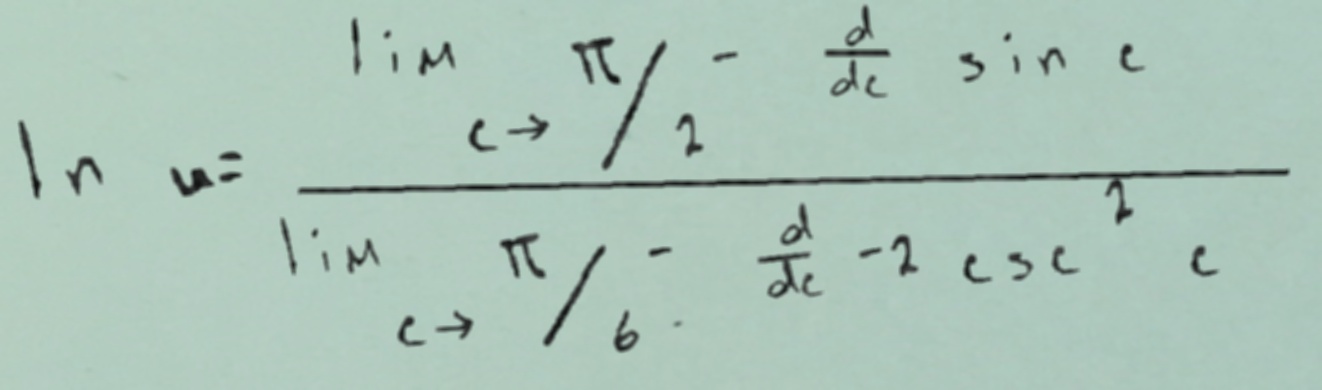 ln u = \frac{\lim_{c \to \pi/2^-} \frac{d}{dc} \sin c}{\lim_{c \to \pi/6^-} \frac{d}{dc} -2 \csc^2 c}